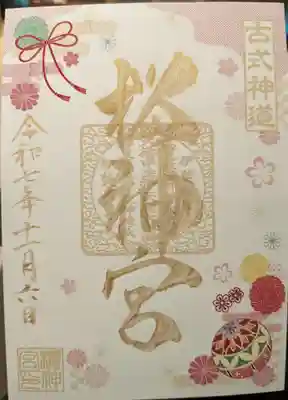 古式神道
桜神宮
令和七年十一月六日